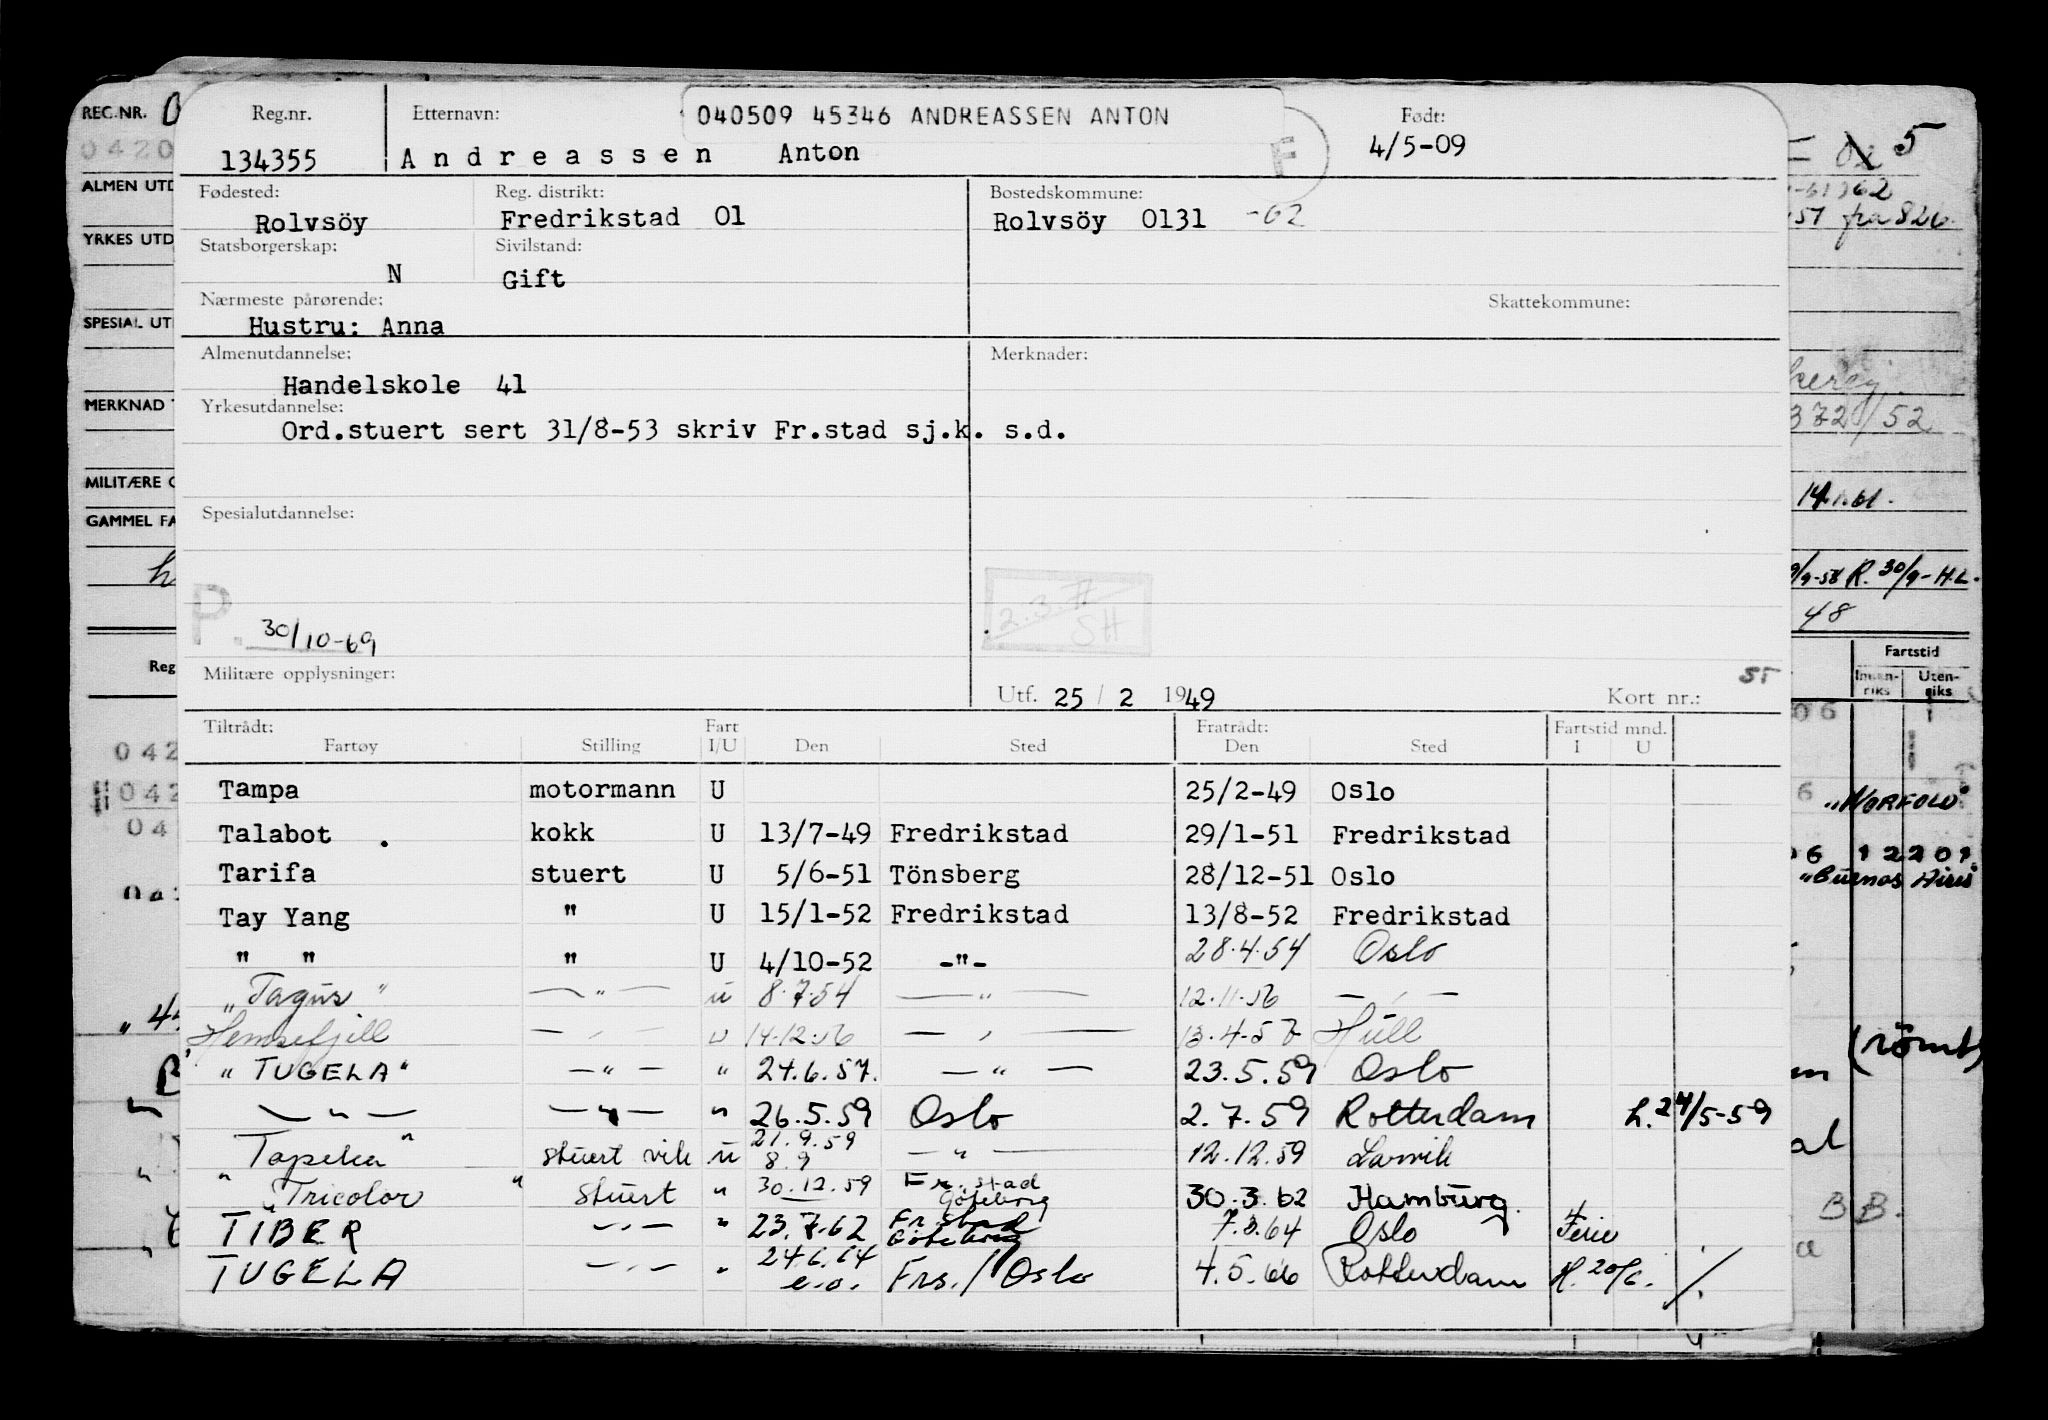 REG.NR. 0
0420
ALMEN UTD
YRKES UTD
SPESIAL UT
MERKNAD
MILITÆRE
GAMMEL FA
Reg
042
042
04
Reg.nr. Etternavn: 040509 45346 ANDREASSEN ANTON Født:
134355 Andreassen Anton F 4/5-09
Fødested: Reg. distrikt: Bostedskommune:
Rolvsöy Fredrikstad 01 Rolvsöy 0131 -62
Statsborgerskap: Sivilstand:
N Gift
Nærmeste pårørende: Skattekommune:
Hustru: Anna
Almenutdannelse: Merknader:
Handelskole 41
Yrkesutdannelse:
Ord.stuert sert 31/8-53 skriv Fr.stad sj.k. s.d.
Spesialutdannelse:
P. 30/10-69
2.3.71
SH
Militære opplysninger: Utf. 25 / 2 1949 Kort nr.: 55
Tiltrådt: Fart Fratrådt: Fartstid mnd.
Fartøy Stilling I/U Den Sted Den Sted I U
Tampa motormann U 25/2-49 Oslo
Talabot . kokk U 13/7-49 Fredrikstad 29/1-51 Fredrikstad
Tarifa stuert U 5/6-51 Tönsberg 28/12-51 Oslo
Tay Yang " U 15/1-52 Fredrikstad 13/8-52 Fredrikstad
" " " U 4/10-52 -"- 28.4.54 Oslo
"Tagus" —"— u 8.7.54 —"— 12.11.56 —"—
Hemsefjell —"— u 14.12.56 —"— 13.4.57 Hull
"TUGELA" —"— " 24.6.57. —"— 23.5.59 Oslo
—"— —"— " 26.5.59 Oslo 2.7.59 Rotterdam h. 24/5-59
"Tapeka" stuert vik u 21.9.59 8.9 —"— 12.12.59 Larvik
"Tricolor" stuert " 30.12.59 Fr.stad Göteborg 30.3.62 Hamburg.
TIBER —"— " 23.7.62 Fr.stad Göteborg 7.3.64 Oslo Ferie
TUGELA —"— " 24.6.64 e.o. Frs./Oslo 4.5.66 Rotterdam H. 20/6. /.
5
62
51 fra 826.
372/52
14.1.61.
9/9-58 R. 30/9-H.L.
48
Fartstid
Innen-riks Uten-riks
06
6 "NORFOLD"
06 12201
"Buenos Aires"
(römt)
B B.